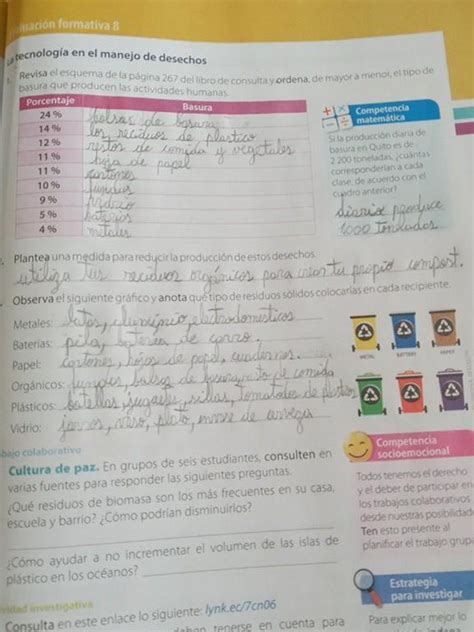 luación formativa 8
La tecnología en el manejo de desechos
1. Revisa el esquema de la página 267 del libro de consulta y ordena, de mayor a menor, el tipo de
basura que producen las actividades humanas.
Porcentaje Basura
24 % bolsas de basura
14 % los residuos de plastico
12 % restos de comida y vegetales
11 % hoja de papel
11 % cartones
10 % fundas
9 %
5 % baterias
4 % metales
Competencia
matemática
Si la producción diaria de
basura en Quito es de
2 200 toneladas, ¿cuántas
corresponderían a cada
clase, de acuerdo con el
cuadro anterior?
diario produce
toneladas
Plantea una medida para reducir la producción de estos desechos.
utiliza tus residuos orgánicos para crear tu propio compost.
Observa el siguiente gráfico y anota qué tipo de residuos sólidos colocarías en cada recipiente.
Metales: latas, aluminio, electrodomesticos
Baterías: pila, bateria de carro.
Papel: cartones, hojas de papel, cuadernos.
Orgánicos: bolsa de basura, resto de comida
Plásticos: botellas, juguetes, sillas, de plastico
Vidrio: jarros, vaso, plato, de
METAL BATTERY PAPER
bajo colaborativo
Cultura de paz. En grupos de seis estudiantes, consulten en
varias fuentes para responder las siguientes preguntas.
¿Qué residuos de biomasa son los más frecuentes en su casa,
escuela y barrio? ¿Cómo podrían disminuirlos?
¿Cómo ayudar a no incrementar el volumen de las islas de
plástico en los océanos?
Competencia
socioemocional
Todos tenemos el derecho
y el deber de participar en
los trabajos colaborativos
desde nuestras posibilidad
Ten esto presente al
planificar el trabajo grupa
vidad investigativa
Consulta en este enlace lo siguiente: lynk.ec/7cn06
deban tenerse en cuenta para
Estrategia
para investigar
Para explicar mejor lo